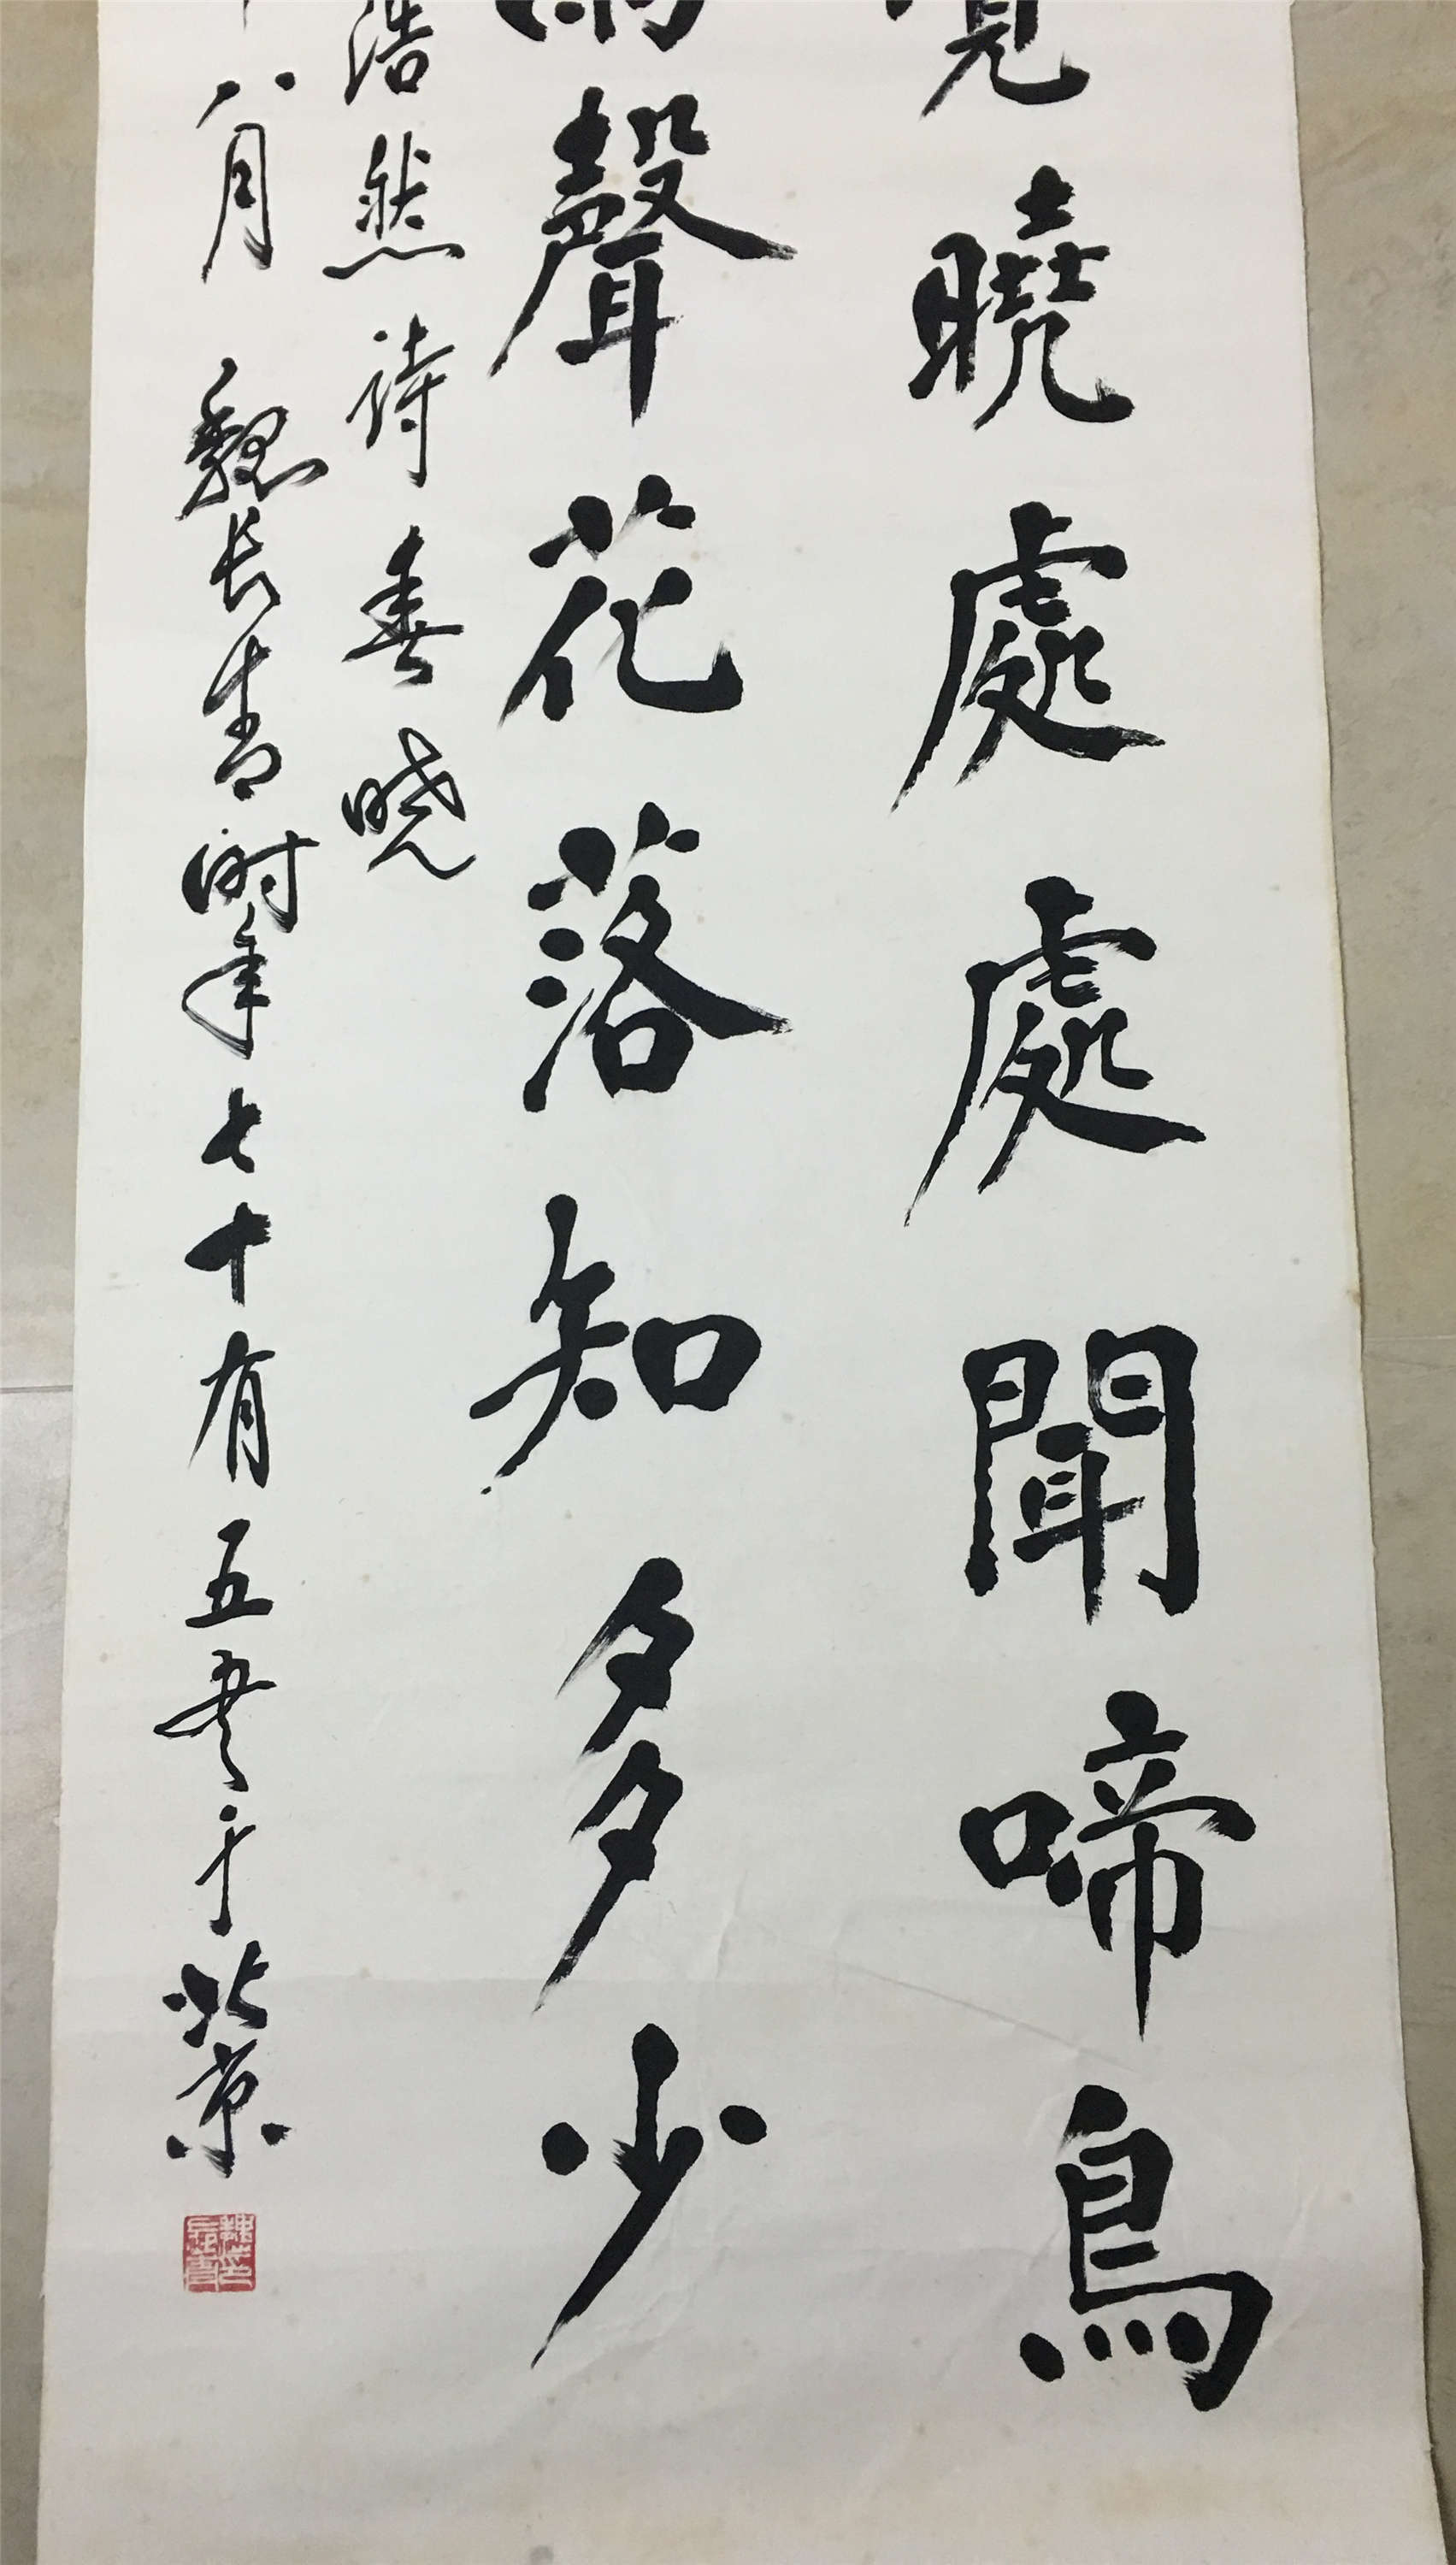 覺曉處處聞啼鳥
雨聲花落知多少
浩然詩春曉
八月 魏長青時年七十有五書于北京
魏長青印